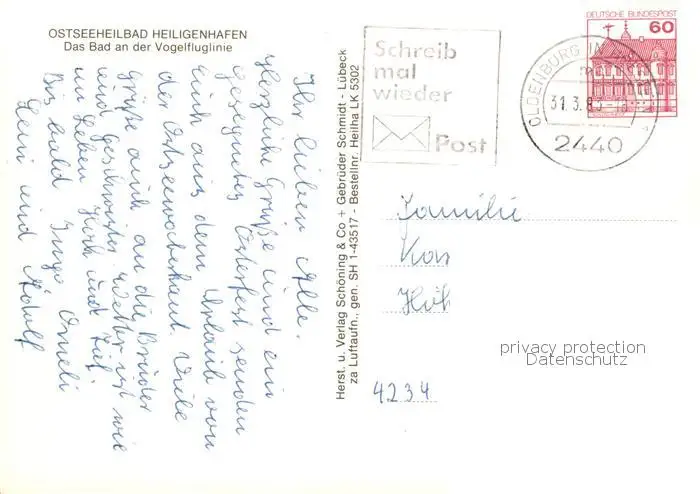 OSTSEEHEILBAD HEILIGENHAFEN
Das Bad an der Vogelfluglinie
Ihr lieben Alle.
Herzliche Grüße und ein
gesegnetes Osterfest senden
euch aus dem Urlaub von
der Ostsee Viele
Grüße auch an die Brüder
und Geschwister Wetter ist wie
im Leben Hoch und Tief
Bis bald Ingo
und Adolf
Herst. u. Verlag Schöning & Co + Gebrüder Schmidt - Lübeck
za Luftaufn., gen. SH 1-43517 - Bestellnr. Heilha LK 5302
Schreib
mal
wieder
Post
DEUTSCHE BUNDESPOST
60
OLDENBURG IN
31.3.83
2440
Familie
4234
privacy protection
Datenschutz